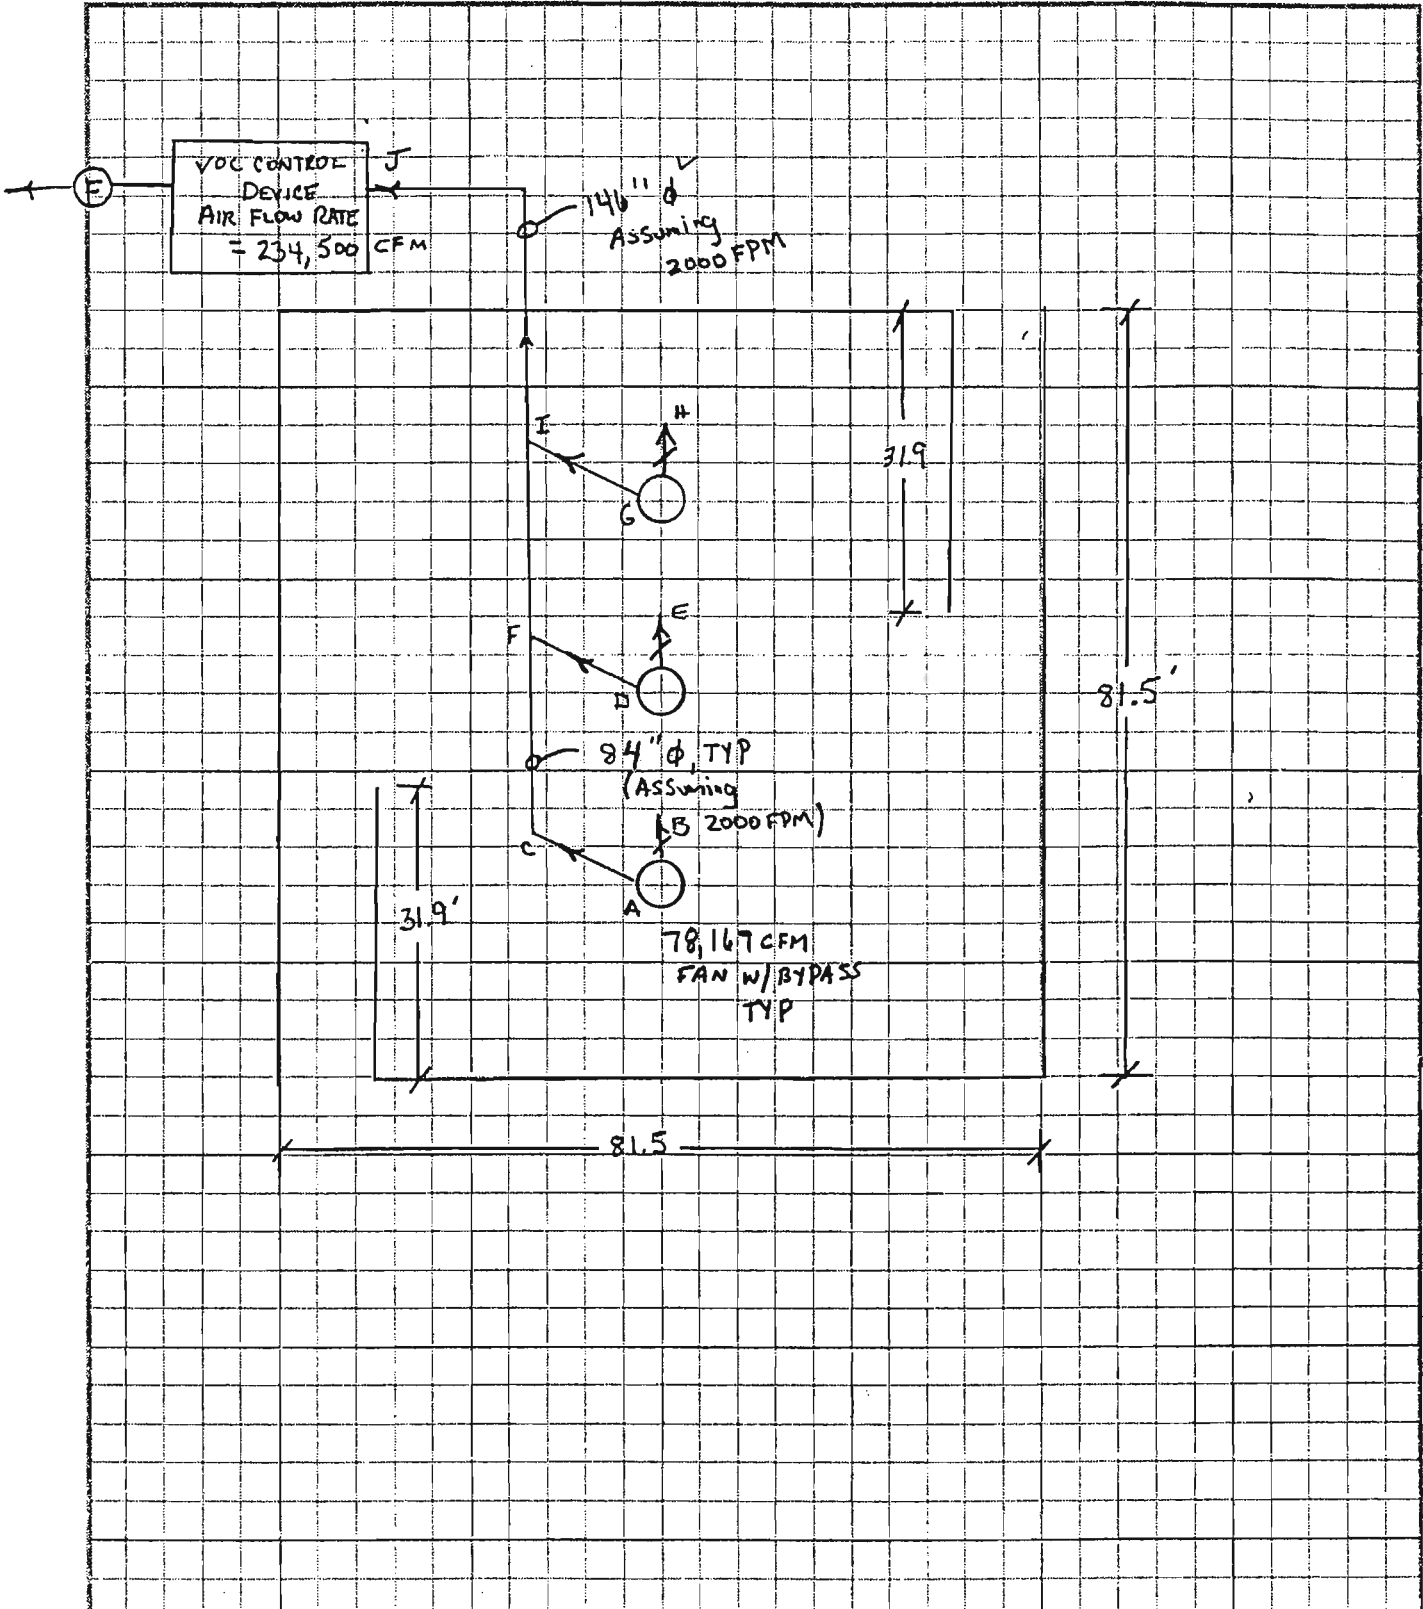 VOC CONTROL
DEVICE
AIR FLOW RATE
= 234,500 CFM
J
E
146" ϕ
Assuming
2000 FPM
I
H
G
31.9
F
E
D
81.5'
84" ϕ, TYP
(Assuming
2000 FPM)
B
C
A
31.9'
78,167 CFM
FAN W/ BYPASS
TYP
81.5